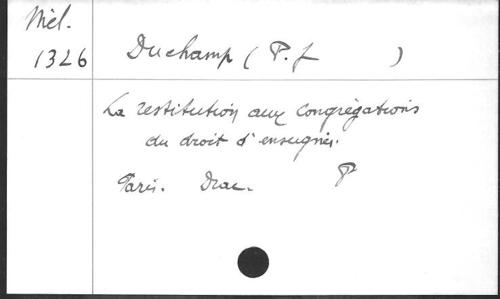 Mél.
1326
Duchamp (P. J )
La restitution aux congrégations
du droit d'enseigner.
Paris. Drac. P